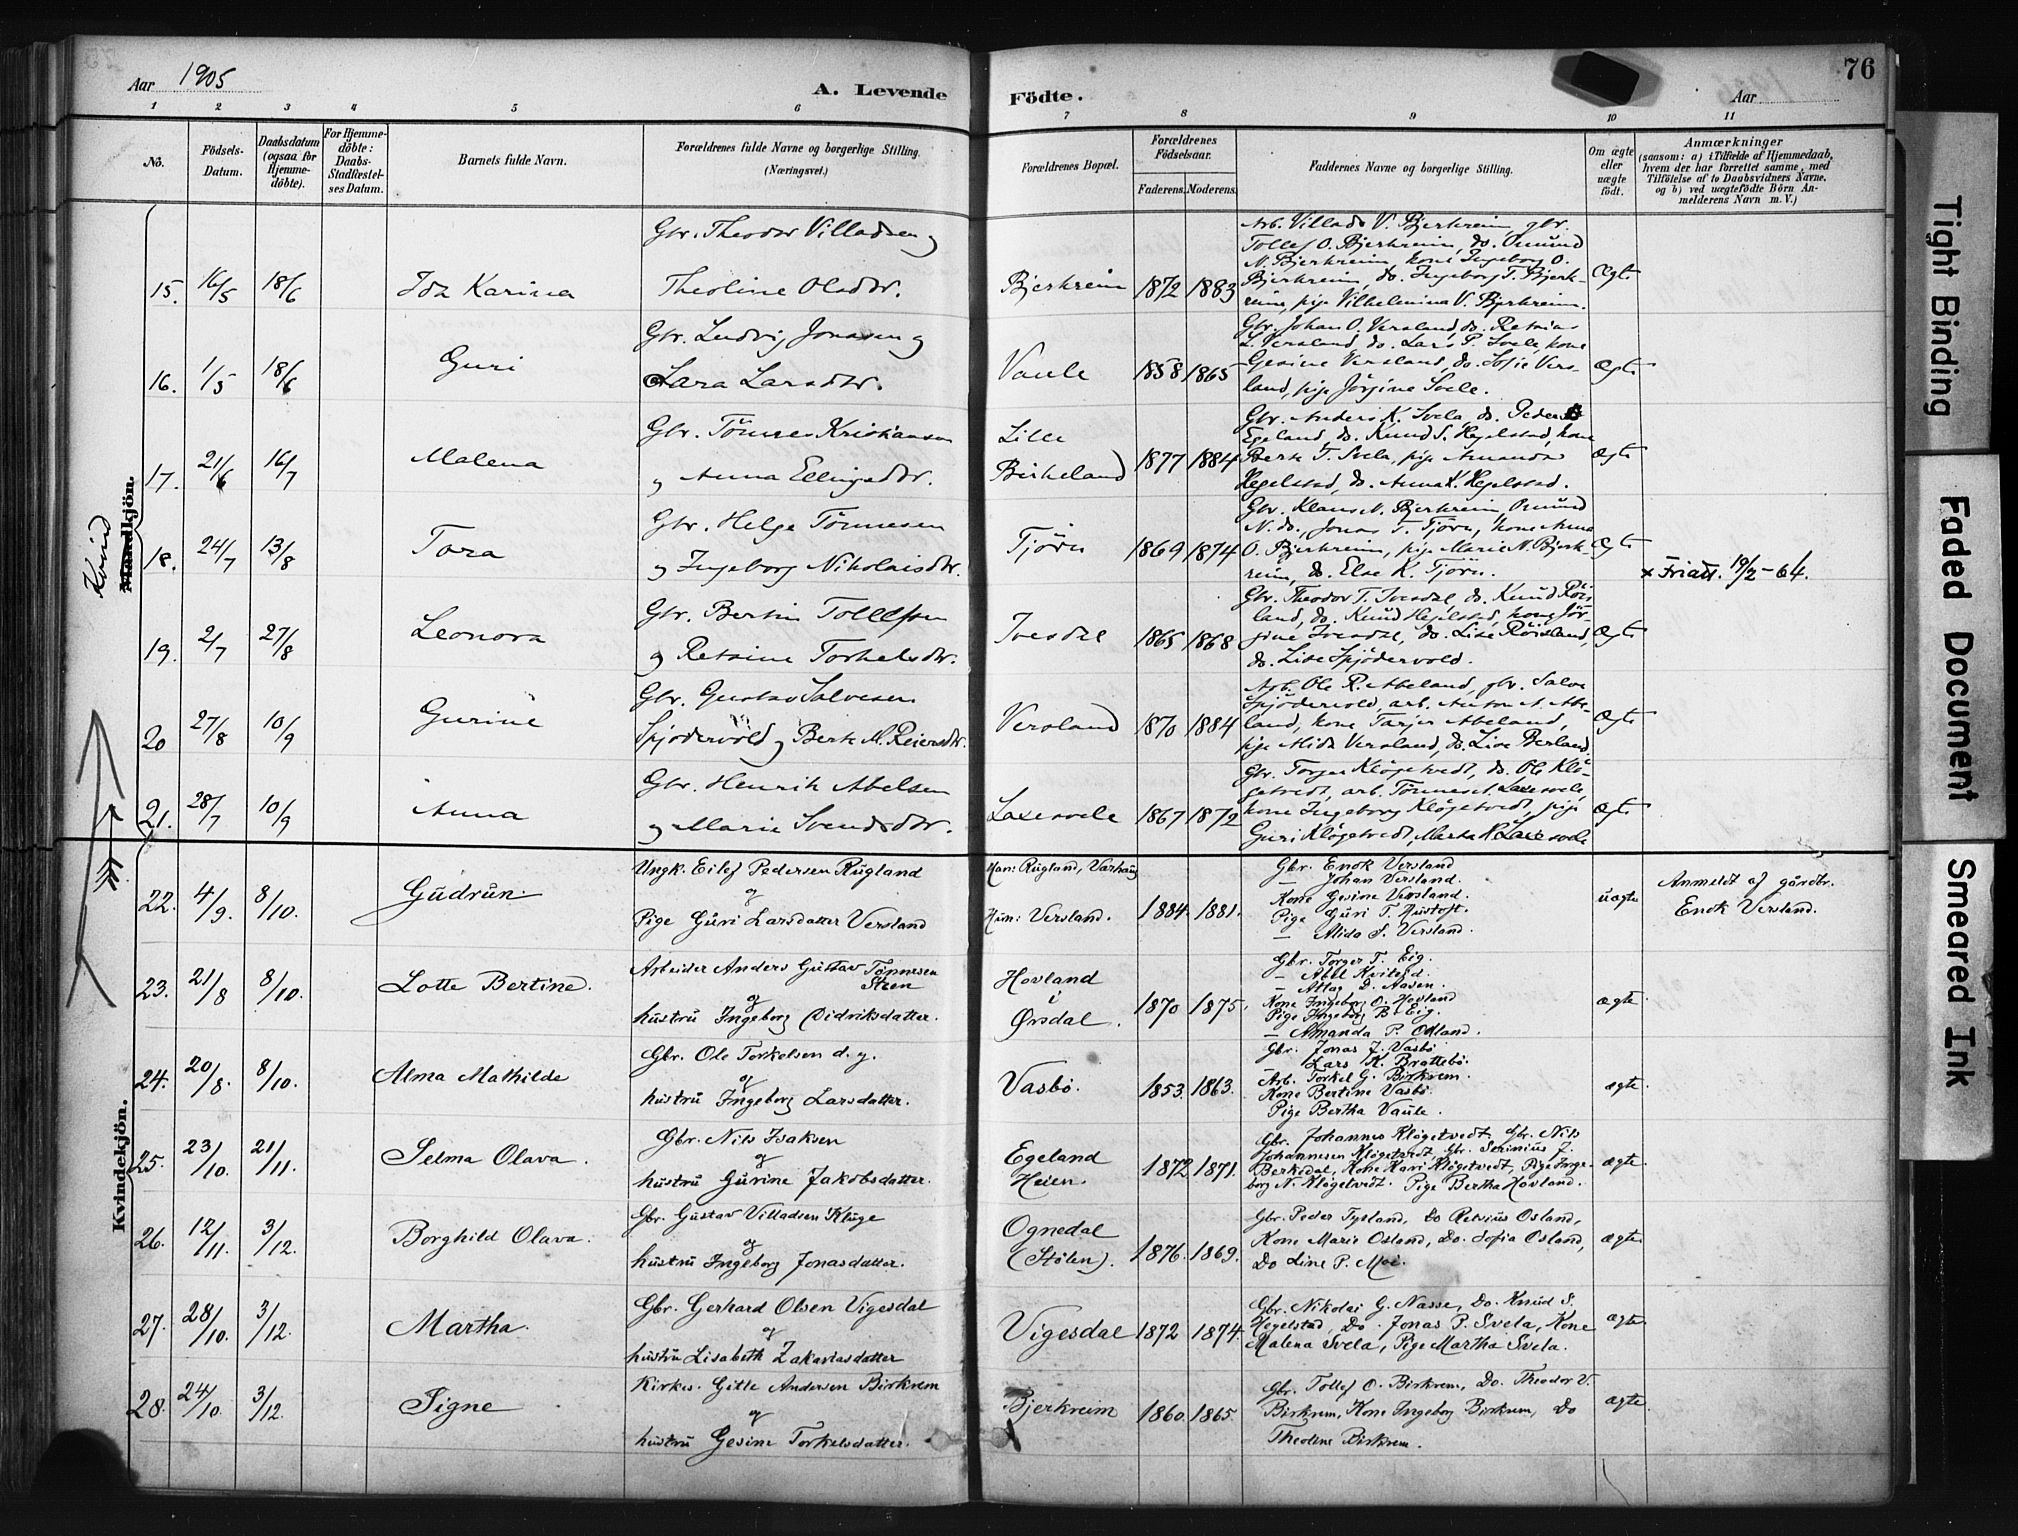 Aar 1905
A. Levende Födte.
Aar
76
1 2 3 4 5 6 7 8 9 10 11
No.
Födsels-Datum.
Daabsdatum (ogsaa for Hjemme-döbte).
For Hjemme-döbte: Daabs-Stadfæstel-ses Datum.
Barnets fulde Navn.
Forældrenes fulde Navne og borgerlige Stilling. (Næringsvei.)
Forældrenes Bopæl.
Forældrenes Födselsaar.
Faderens. Moderens.
Faddernes Navne og borgerlige Stilling.
Om ægte eller uægte födt.
Anmærkninger
(saasom: a) i Tilfælde af Hjemmedaab,
hvem der har forrettet samme, med
Tilföielse af to Daabsvidners Navne,
og b) ved uægtefödte Börn An-
melderens Navn m. V.)
Kvind
Mandkjön.
15. 16/5 18/6 Ida Karina
Gbr. Theodor Villadsen og
Theoline Olsdtr.
Bjerkreim 1872 1883
Arb. Villads V. Bjerkreim, gbr.
Tollef O. Bjerkreim, do. Omund
N. Bjerkreim, kone Ingeborg O.
Bjerkreim, do. Ingeborg T. Bjerk-
reim, pige Vilhelmina V. Bjerkreim.
Ægte
16. 1/5 18/6 Guri
Gbr. Ludvig Jonasen og
Lara Larsdtr.
Vaule 1858 1865
Gbr. Johan O. Versland, do. Retsius
L. Versland, do. Lars P. Svele, kone
Gesine Versland, do. Sofie Vers-
land, pige Jörgine Svele.
Ægte
17. 21/6 16/7 Malena
Gbr. Tönnes Kristiansen
og Anna Ellingsdtr.
Lille
Birkeland 1877 1884
Gbr. Anders K. Svela, do. Peder
Egeland, do. Knud S. Hegelstad, kone
Berte T. Svela, pige Amanda
Hegelstad, do. Anna K. Hegelstad.
ægte
18. 24/7 13/8 Tora
Gbr. Helge Tönnesen
og Ingeborg Nikolaisdtr.
Tjörn 1869 1874
Gbr. Klaus N. Bjerkreim, Omund
N. do., Jonas T. Tjörn, kone Anna
O. Bjerkreim, pige Marie N. Bjerk-
reim, do. Else K. Tjörn.
Ægte
x Friatt. 19/2-64.
19. 2/7 27/8 Leonora
Gbr. Bertin Tollefsen
og Retsine Torkelsdtr.
Ivesdal 1865 1868
Gbr. Theodor T. Ivesdal, do. Knud Röis
land, do. Knud Hegelstad, kone Jör-
gine Ivesdal, do. Lise Röisland,
do. Lise Spjödervold.
Ægte
20 27/8 10/9 Gurine
Gbr. Gustav Salvesen
Spjödervold og Berte M. Reiersdtr.
Versland 1870 1884
Arb. Ole R. Abeland, gbr. Salve
Spjödervold, arb. Anton A. Abe-
land, kone Tarjer Abeland,
pige Alida Versland, do. Lise Berland
Ægte
21. 28/7 10/9 Anna
Gbr. Henrik Abelsen
og Marie Svendsdtr.
Laxesvele 1867 1872
Gbr. Torger Klögetvedt, do. Ole Klö-
getvedt, arb. Tönnes Laxesvele,
kone Ingeborg Klögetvedt, pige
Guri Klögetvedt, Marta H. Laxesvele
ægte
Kvindekjön.
22. 4/9. 8/10. Gudrun.
Ungk. Eilef Pedersen Rugland
og
Pige Guri Larsdatter Versland
Han: Rugland, Varhaug
Hun: Versland. 1884. 1881.
Gbr. Enok Versland
— Johan Versland.
Kone Gesine Versland.
Pige Guri T. Hustoft.
— Alida S. Versland.
uægte
Anmeldt af gårdbr.
Enok Versland.
23. 21/8 8/10. Lotte Bertine.
Arbeider Anders Gustav Tönnesen
Steen
og
hustru Ingeborg Didriksdatter.
Hovland
i
Ørsdal. 1870 1875.
Gbr. Torger T. Eig.
— Abel Kvitsad.
— Attag D. Aasen.
Kone Ingeborg O. Hovland
Pige Ingeborg B. Eig.
— Amanda P. Odland.
ægte
24. 20/8. 8/10. Alma Mathilde
Gbr. Ole Torkelsen d. y.
og
hustru Ingeborg Larsdatter.
Vasbö. 1853. 1863.
Gbr. Jonas J. Vasbö
— Lars K. Brattebö.
Arb. Torkel G. Birkrem.
Kone Bertine Vasbö.
Pige Bertha Vaule.
ægte
25. 23/10. 21/11. Selma Olava.
Gbr. Nils Isaksen
og
hustru Gurine Jakobsdatter.
Egeland
Heien. 1872 1871.
Gbr. Johannes Klögetvedt, Gbr. Nils
Johannesen Klögetvedt, Gbr. Serinius J.
Berksdal, Kone Kari Klögetvedt, Pige Inge-
borg N. Klögetvedt. Pige Bertha Hovland.
ægte
26. 12/11. 3/12. Borghild Olava.
Gbr. Gustav Villadsen Kluge
og
hustru Ingeborg Jonasdatter.
Ognedal
(Stölen). 1876. 1869.
Gbr. Peder Tysland, Do Retsius Osland,
Kone Marie Osland, Do. Sofia Osland,
Do Line P. Moi.
ægte
27. 28/10. 3/12. Martha.
Gbr. Gerhard Olsen Vigesdal
og
hustru Lisabeth Zakariasdatter
Vigesdal 1872 1874.
Gbr. Nikolai G. Nasse, Do. Knud S.
Hegelstad, Do. Jonas P. Svela, Kone
Malena Svela, Pige Martha Svela.
ægte
28. 24/10. 3/12. Signe
Kirkes. Gitle Andersen Birkrem
og
hustru Gesine Torkelsdatter.
Bjerkreim 1860. 1865.
Gbr. Tollef O. Birkrem, Do. Theodor V.
Birkrem, Kone Ingeborg Birkrem, Do
Theoline Birkrem.
ægte
Tight Binding
Faded Document
Smeared Ink